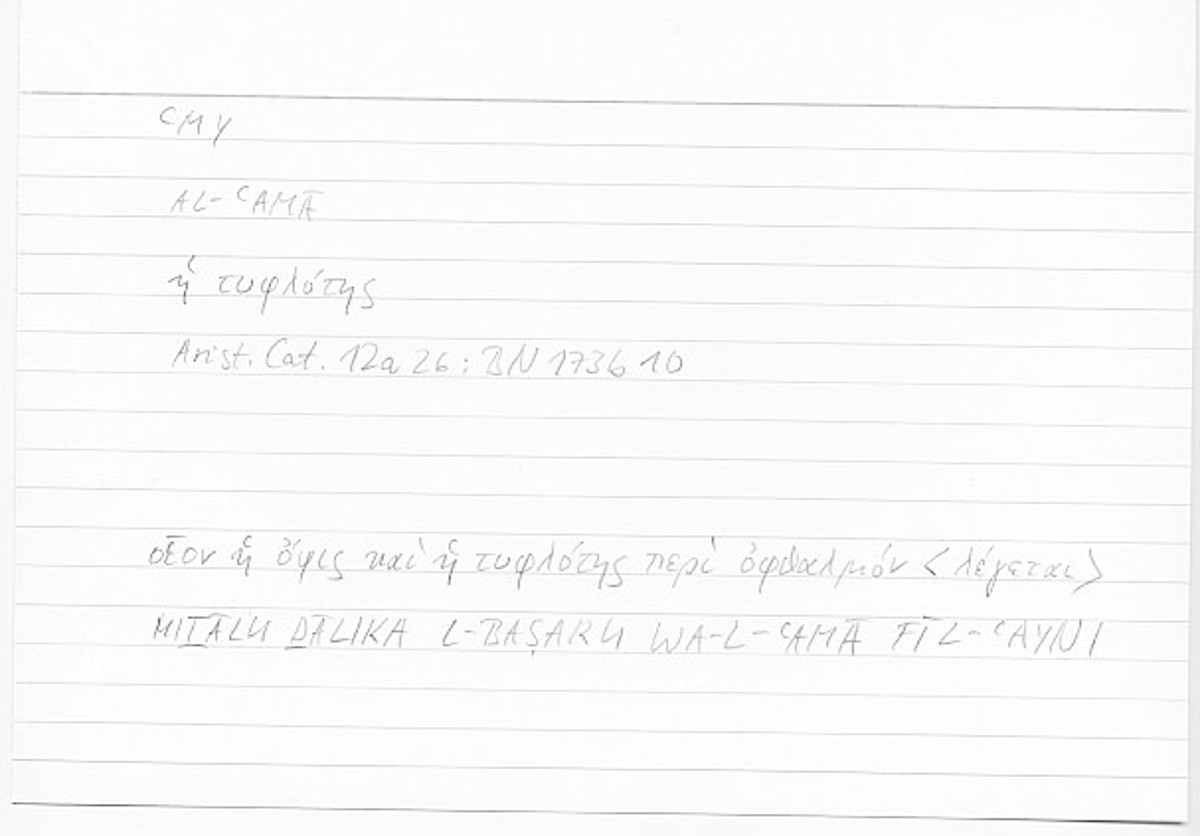 ʿMY
AL-ʿAMĀ
ἡ τυφλότης
Arist. Cat. 12a 26 : BN 173b 10
οἷον ἡ ὄψις καὶ ἡ τυφλότης περὶ ὀφθαλμὸν <λέγεται>
MIṮĀLU ḎĀLIKA L-BAṢARU WA-L-ʿAMĀ FĪ L-ʿAYNI